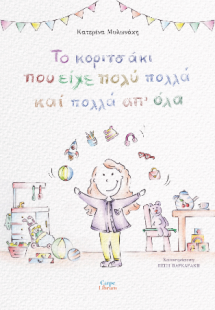 Κατερίνα Μυλωνάκη
Το κοριτσάκι
που είχε πολύ πολλά
και πολλά απ' όλα
Εικονογράφηση